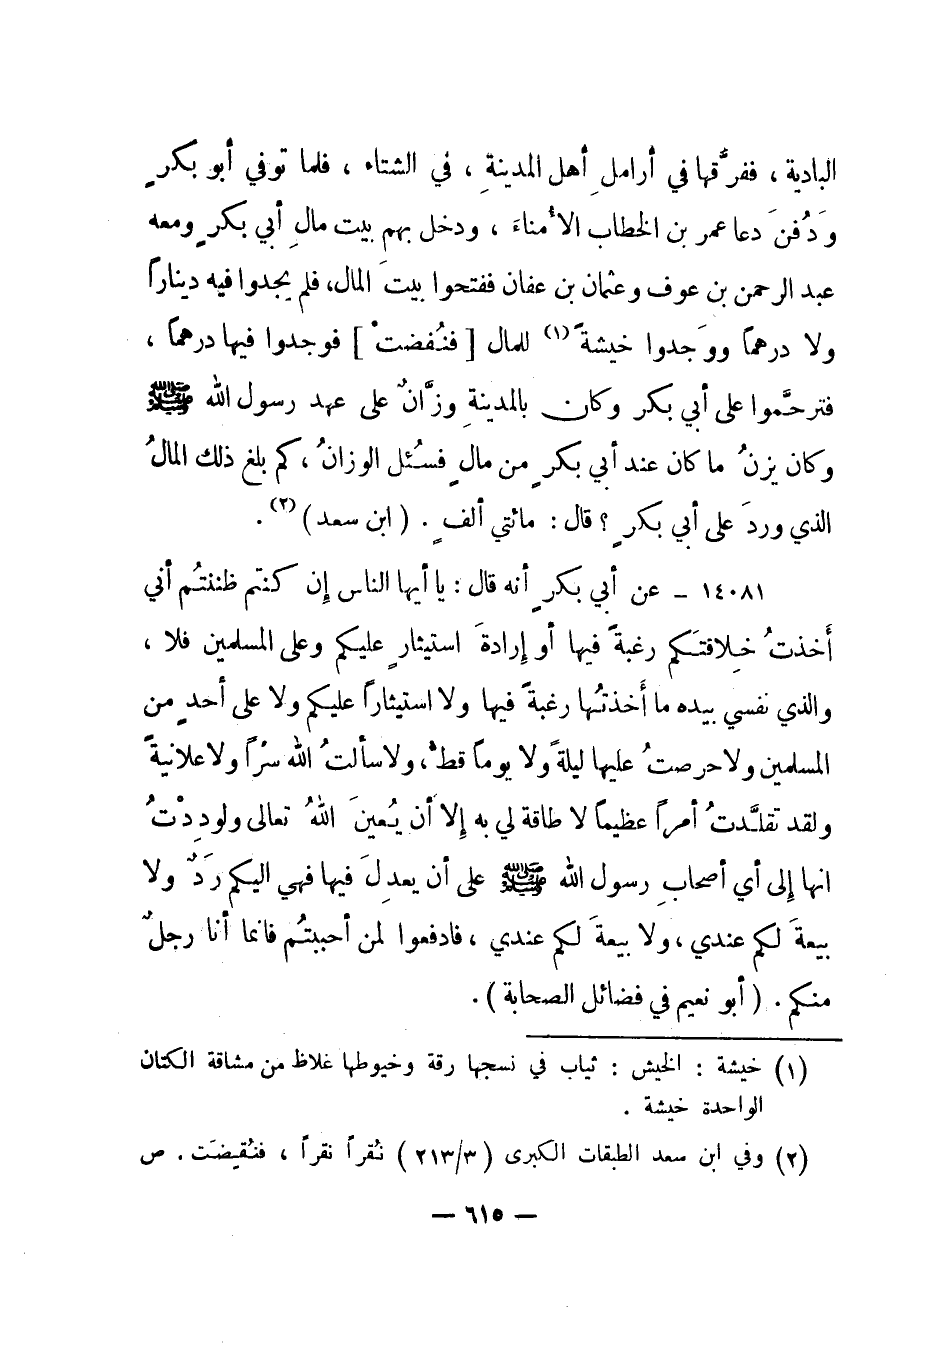 البادية ، ففرَّقها في أراملِ أهل المدينةِ ، في الشتاء ، فلما توفي أبو بكرٍ
وَدُفنَ دعا عمر بن الخطاب الأُمناءَ ، ودخل بهم بيت مالِ أبي بكرٍ ومعه
عبد الرحمن بن عوف وعثمان بن عفان ففتحوا بيتَ المال، فلم يجدوا فيه ديناراً
ولا درهماً ووَجدوا خيشةً (١) للمال [ فنُفضتْ ] فوجدوا فيها درهماً ،
فترحَّموا على أبي بكر وكان بالمدينةِ وزَّانٌ على عهد رسول الله ﷺ
وكان يزنُ ما كان عند أبي بكرٍ من مالٍ فسُئل الوزانُ ، كم بلغ ذلك المالُ
الذي وردَ على أبي بكرٍ ؟ قال : مائتي ألفٍ . ( ابن سعد ) (٢) .
١٤٠٨١ ـ عن أبي بكرٍ أنه قال : يا أيها الناس إن كنتم ظننتُم أني
أَخذتُ خلافتَكم رغبةً فيها أو إرادةَ استيثارٍ عليكم وعلى المسلمين فلا ،
والذي نفسي بيده ما أَخذتُها رغبةً فيها ولا استيثاراً عليكم ولا على أحدٍ من
المسلمين ولا حرصتُ عليها ليلةً ولا يوماً قطُّ، ولا سألتُ الله سرّاً ولا علانيةً
ولقد تقلَّدتُ أمراً عظيماً لا طاقة لي به إلا أن يُعينَ اللهُ تعالى ولودِدْتُ
انها إلى أي أصحابِ رسول الله ﷺ على أن يعدلَ فيها فهي اليكم رَدٌّ ولا
بيعةَ لكم عندي ، ولا بيعةَ لكم عندي ، فادفعوا لمن أحببتُم فانما أنا رجلٌ
منكم . ( أبو نعيم في فضائل الصحابة ) .
(١) خيشة : الخيش : ثياب في نسجها رقة وخيوطها غلاظ من مشاقة الكتان
الواحدة خيشة .
(٢) وفي ابن سعد الطبقات الكبرى ( ٢١٣/٣ ) نُقراً نقراً ، فنُقيضَت . ص
— ٦١٥ —